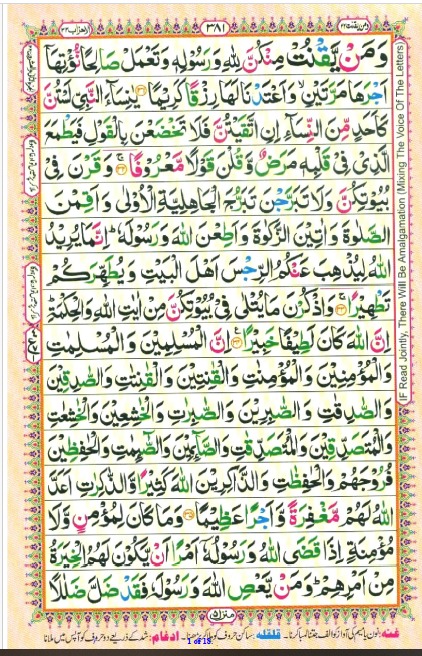 ومن يقنت ٢٢
٣٨١
الاحزاب ٣٣
وَمَنْ يَّقْنُتْ مِنْكُنَّ لِلّٰهِ وَرَسُوْلِهٖ وَتَعْمَلْ صَالِحًا نُّؤْتِهَاۤ
اَجْرَهَا مَرَّتَيْنِۙ وَاَعْتَدْنَا لَهَا رِزْقًا كَرِيْمًا ۝۳۱ يٰنِسَآءَ النَّبِيِّ لَسْتُنَّ
كَاَحَدٍ مِّنَ النِّسَآءِ اِنِ اتَّقَيْتُنَّ فَلَا تَخْضَعْنَ بِالْقَوْلِ فَيَطْمَعَ
الَّذِيْ فِيْ قَلْبِهٖ مَرَضٌ وَّقُلْنَ قَوْلًا مَّعْرُوْفًاۚ ۝۳۲ وَقَرْنَ فِيْ
بُيُوْتِكُنَّ وَلَا تَبَرَّجْنَ تَبَرُّجَ الْجَاهِلِيَّةِ الْاُوْلٰى وَاَقِمْنَ
الصَّلٰوةَ وَاٰتِيْنَ الزَّكٰوةَ وَاَطِعْنَ اللّٰهَ وَرَسُوْلَهٗؕ اِنَّمَا يُرِيْدُ
اللّٰهُ لِيُذْهِبَ عَنْكُمُ الرِّجْسَ اَهْلَ الْبَيْتِ وَيُطَهِّرَكُمْ
تَطْهِيْرًاۚ ۝۳۳ وَاذْكُرْنَ مَا يُتْلٰى فِيْ بُيُوْتِكُنَّ مِنْ اٰيٰتِ اللّٰهِ وَالْحِكْمَةِؕ
اِنَّ اللّٰهَ كَانَ لَطِيْفًا خَبِيْرًا ۝۳۴ اِنَّ الْمُسْلِمِيْنَ وَالْمُسْلِمٰتِ
وَالْمُؤْمِنِيْنَ وَالْمُؤْمِنٰتِ وَالْقٰنِتِيْنَ وَالْقٰنِتٰتِ وَالصّٰدِقِيْنَ
وَالصّٰدِقٰتِ وَالصّٰبِرِيْنَ وَالصّٰبِرٰتِ وَالْخٰشِعِيْنَ وَالْخٰشِعٰتِ
وَالْمُتَصَدِّقِيْنَ وَالْمُتَصَدِّقٰتِ وَالصَّآئِمِيْنَ وَالصّٰٓئِمٰتِ وَالْحٰفِظِيْنَ
فُرُوْجَهُمْ وَالْحٰفِظٰتِ وَالذّٰكِرِيْنَ اللّٰهَ كَثِيْرًا وَّالذّٰكِرٰتِ اَعَدَّ
اللّٰهُ لَهُمْ مَّغْفِرَةً وَّاَجْرًا عَظِيْمًا ۝۳۵ وَمَا كَانَ لِمُؤْمِنٍ وَّلَا
مُؤْمِنَةٍ اِذَا قَضَى اللّٰهُ وَرَسُوْلُهٗۤ اَمْرًا اَنْ يَّكُوْنَ لَهُمُ الْخِيَرَةُ
مِنْ اَمْرِهِمْؕ وَمَنْ يَّعْصِ اللّٰهَ وَرَسُوْلَهٗ فَقَدْ ضَلَّ ضَلٰلًا
(IF Read Jointly, There Will Be Amalgamation (Mixing The Voice Of The Letters)
منزل ٥
غنه: نون یا میم کی آواز کو الف جتنا لمبا کرنا۔ قلقله: ساکن حروف کو ہلا کر پڑھنا۔ ادغام: شد کے ذریعے دو حروف کو آپس میں ملانا
1 of 15